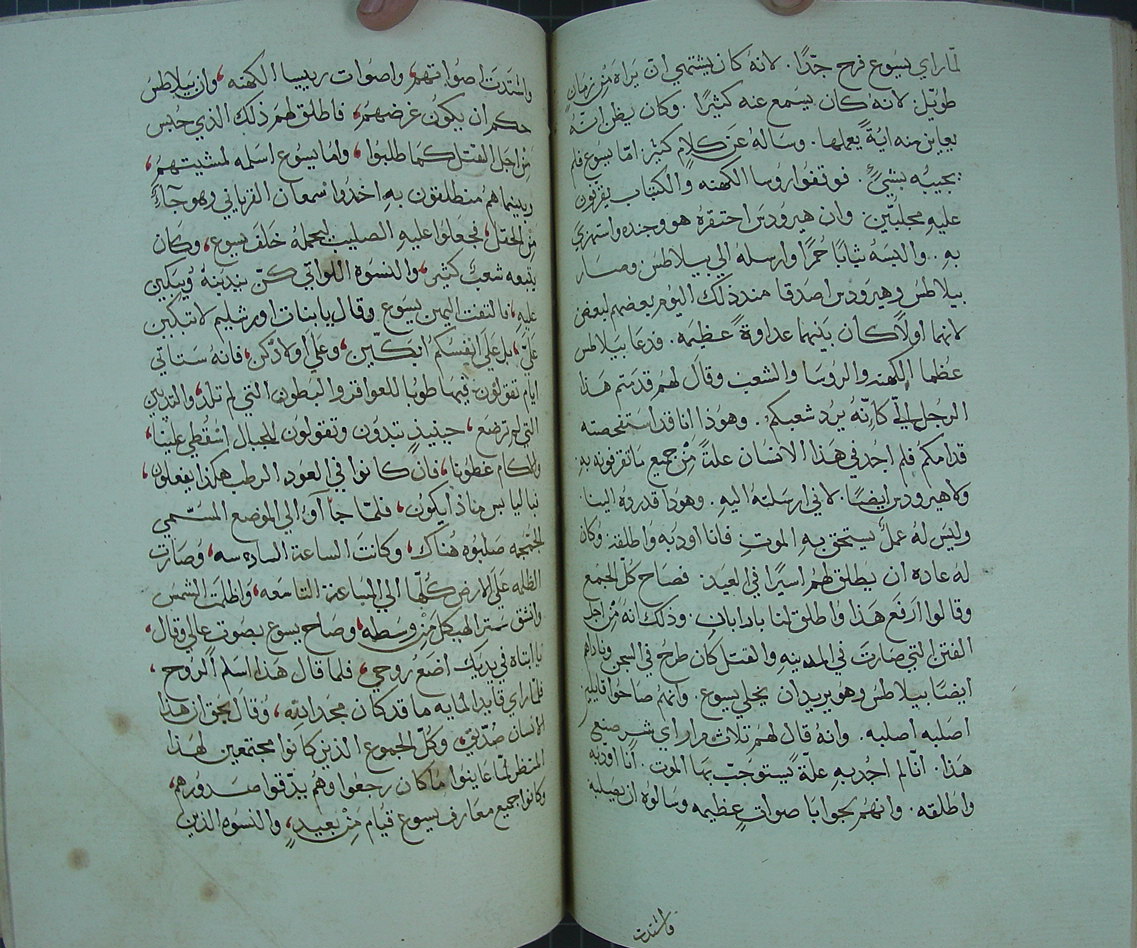 لمّا راي يسوع فرح جدًا. لانه كان يشتهي ان يراه من زمان
طويل. لانه كان يسمع عنه كثيرًا. وكان يظن انه
يعاين منه ايةً يعملها. وساله عن كلام كثير. امّا يسوع فلم
يجيبه بشيٍ. فوقفوا روسا الكهنه والكتّاب يقرفون
عليه مجلبين. وان هيرودس احتقره هو وجنده واستهزي
به. والبسه ثيابًا حُمرًا وارسله الي بيلاطس وصار
بيلاطس وهيرودس اصدقا منذ ذلك اليوم بعضهم لبعض
لانهما اولاً كان بينهما عداوةً عظيمه. ودعا بيلاطس
عظما الكهنه والروسا والشعب وقال لهم قدمتم هذا
الرجل اليّ كانه يرُد شعبكم. وهوذا انا قد استفحصته
قدامكم فلم اجد في هذا الانسان علةً من جميع ما تقرفونه به
ولا هيرودس ايضًا. لاني ارسلته اليه. وهوذا قد رده الينا.
وليس له عملٌ يستحق به الموت فانا اودبه واطلقه. وكان
له عاده ان يطلق لهم اسيرًا في العيد. فصاح كلّ الجمع
وقالوا ارفع هذا واطلق لنا بارابان. وذلك انه من اجل
الفتن التي صارت في المدينه والقتل كان طرح في السجن وناداهم
ايضًا بيلاطس وهو يريد ان يخلي يسوع. وانهم صاحوا قايلين
اصلبه اصلبه. وانه قال لهم ثلاث مرار اي شرٍ صنع
هذا. انا لم اجد به علّةً يستوجب بها الموت. انا اودبه
واطلقه. وانهم بحوا باصواتٍ عظيمه وسالوه ان يصلبه
واشتدت
واشتدت اصواتهم، واصوات رييسا الكهنه، وان بيلاطس
حكم ان يكون غرضهم، فاطلق لهم ذلك الذي حبس
من اجل القتل كما طلبوا، وامّا يسوع اسلمه لمشيتهم،
وبينما هم منطلقون به اخذوا سمعان القرياني وهو جآءً
من الحقل، فجعلوا عليه الصليب ليحمله خلف يسوع، وكان
يتبعه شعبٌ كثير، والنسوه اللواتي كنّ يندبنهُ ويبكين
عليه، فالتفت اليهن يسوع وقال يا بنات اورشليم لا تبكين
عليّ، بل علي انفسكم ابكين، وعلي اولادكن، فانه ستاتي
ايام تقولون فيها طوبا للعواقر والبطون التي لم تلد، والثديين
التي لم ترضع، حينيذٍ تبدون وتقولون للجبال اسقطي علينا،
والاكام غطونا، فان كانوا في العود الرطب هكذا يفعلون،
فباليابس ماذا يكون، فلمّا جآءوا الي الموضع المسّمي
الجمجمه صلبوه هناك، وكانت الساعة السادسه، وصارت
الظلمه علي الارض كلّها الي الساعة التاسعه، واظلمت الشمس
وانشق ستر الهيكل من وسطه، وصاح يسوع بصوت عالي وقال،
يا ابتاه في يديك اضع روحي، فلما قال هذا اسلم الروح،
فلمّا راي قايد المايه ما قد كان مجد الله، وقال بحق ان هذا
الانسان صدّيق، وكلّ الجموع الذين كانوا مجتمعين لهذا
المنظر لمّا عاينوا ما كان رجعوا وهم يدّقوا صدورهم،
وكانوا جميع معارف يسوع قيام من بعيدٍ، والنسوه الذين